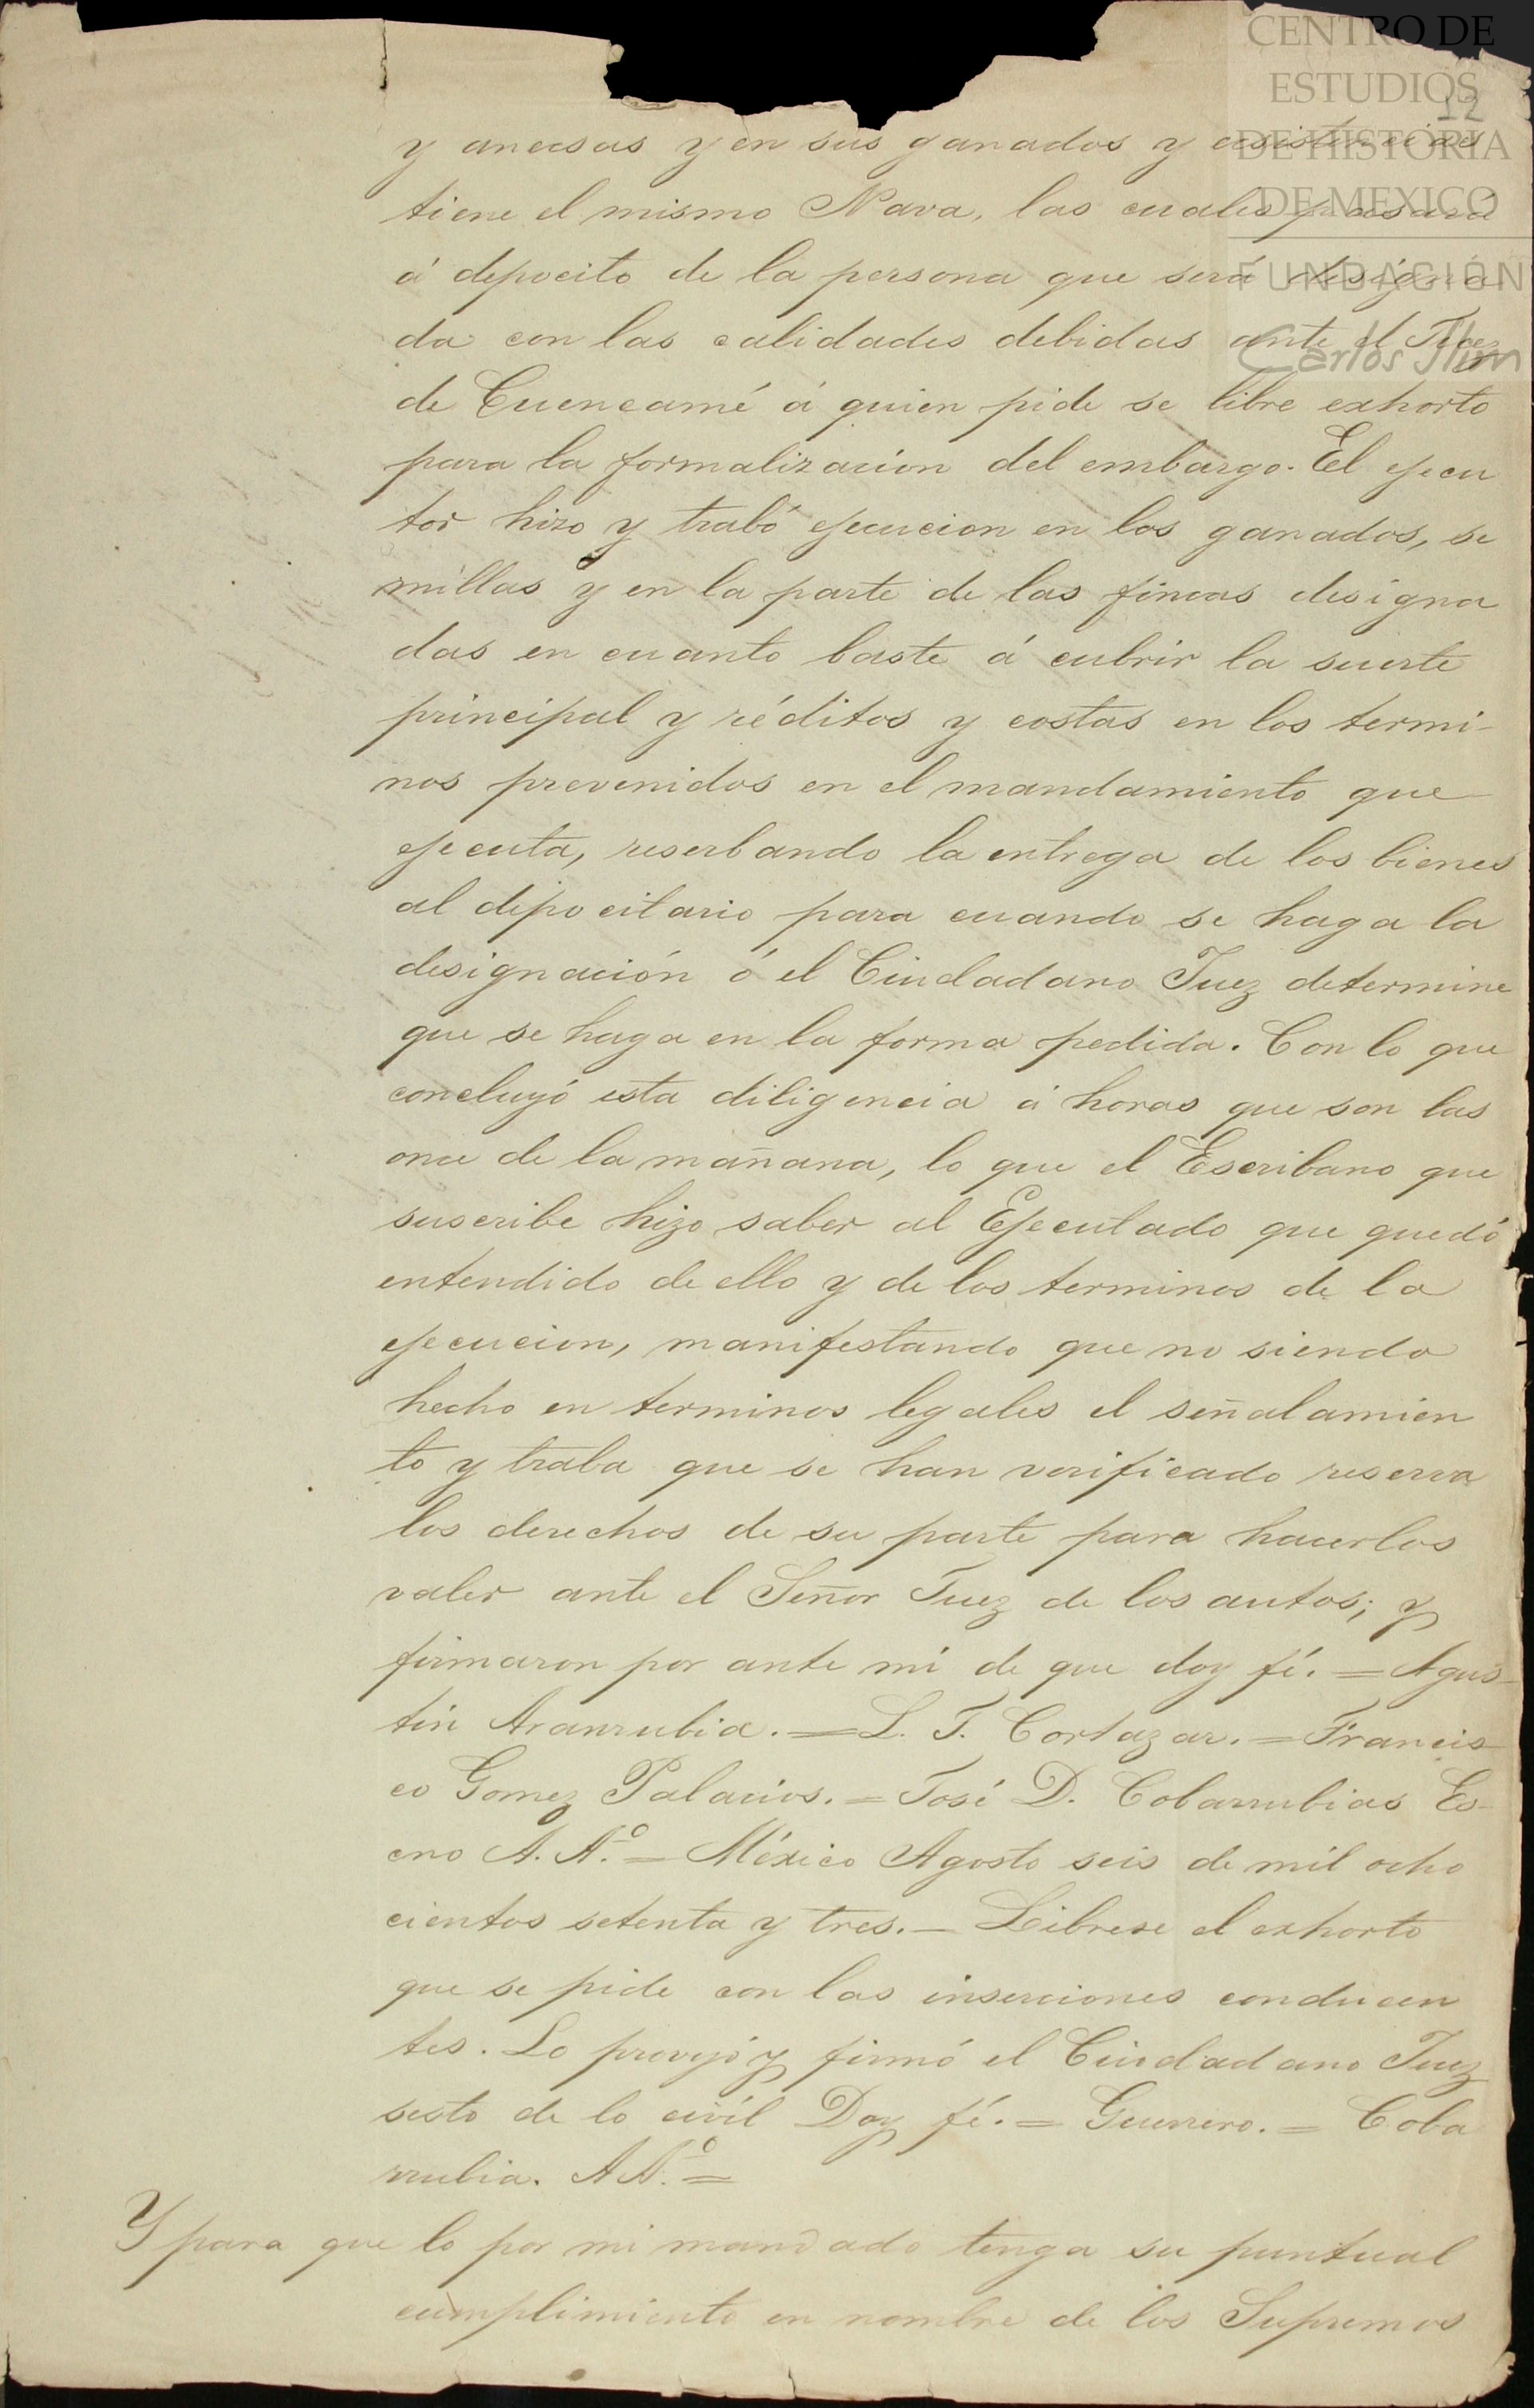 CENTRO DE
ESTUDIOS
12
DE HISTORIA
DE MEXICO
FUNDACIÓN
Carlos Slim
y anecsas y en sus ganados y ecsistencias
tiene el mismo Nava, las cuales pasará
á depocito de la persona que será designa
da con las calidades debidas ante el Juez
de Cuencamé á quien pide se libre exhorto
para la formalizacion del embargo. El ejecu
tor hizo y trabó ejecucion en los ganados, se
millas y en la parte de las fincas designa
das en cuanto baste á cubrir la suerte
principal y réditos y costas en los termi-
nos prevenidos en el mandamiento que
ejecuta, reserbando la entrega de los bienes
al depocitario para cuando se haga la
designación ó el Ciudadano Juez determine
que se haga en la forma pedida. Con lo que
concluyó esta diligencia á horas que son las
once de la mañana, lo que el Escribano que
suscribe hizo saber al Ejecutado que quedó
entendido de ello y de los terminos de la
ejecucion, manifestando que no siendo
hecho en terminos legales el señalamien
to y traba que se han verificado reserva
los derechos de su parte para hacerlos
valer ante el Señor Juez de los autos; y
firmaron por ante mi de que doy fé. = Agus-
tin Aranrubia. = L. T. Cortazar. = Francis-
co Gomez Palacios. = José D. Cobarrubias Es-
cno A. A.º = México Agosto seis de mil ocho
cientos setenta y tres. = Librese el exhorto
que se pide con las inserciones conducen
tes. Lo proveyó y firmó el Ciudadano Juez
sesto de lo civil Doy fé. = Guerrero. = Coba
rrubia. A A.º =
Y para que lo por mi mandado tenga su puntual
cumplimiento en nombre de los Supremos